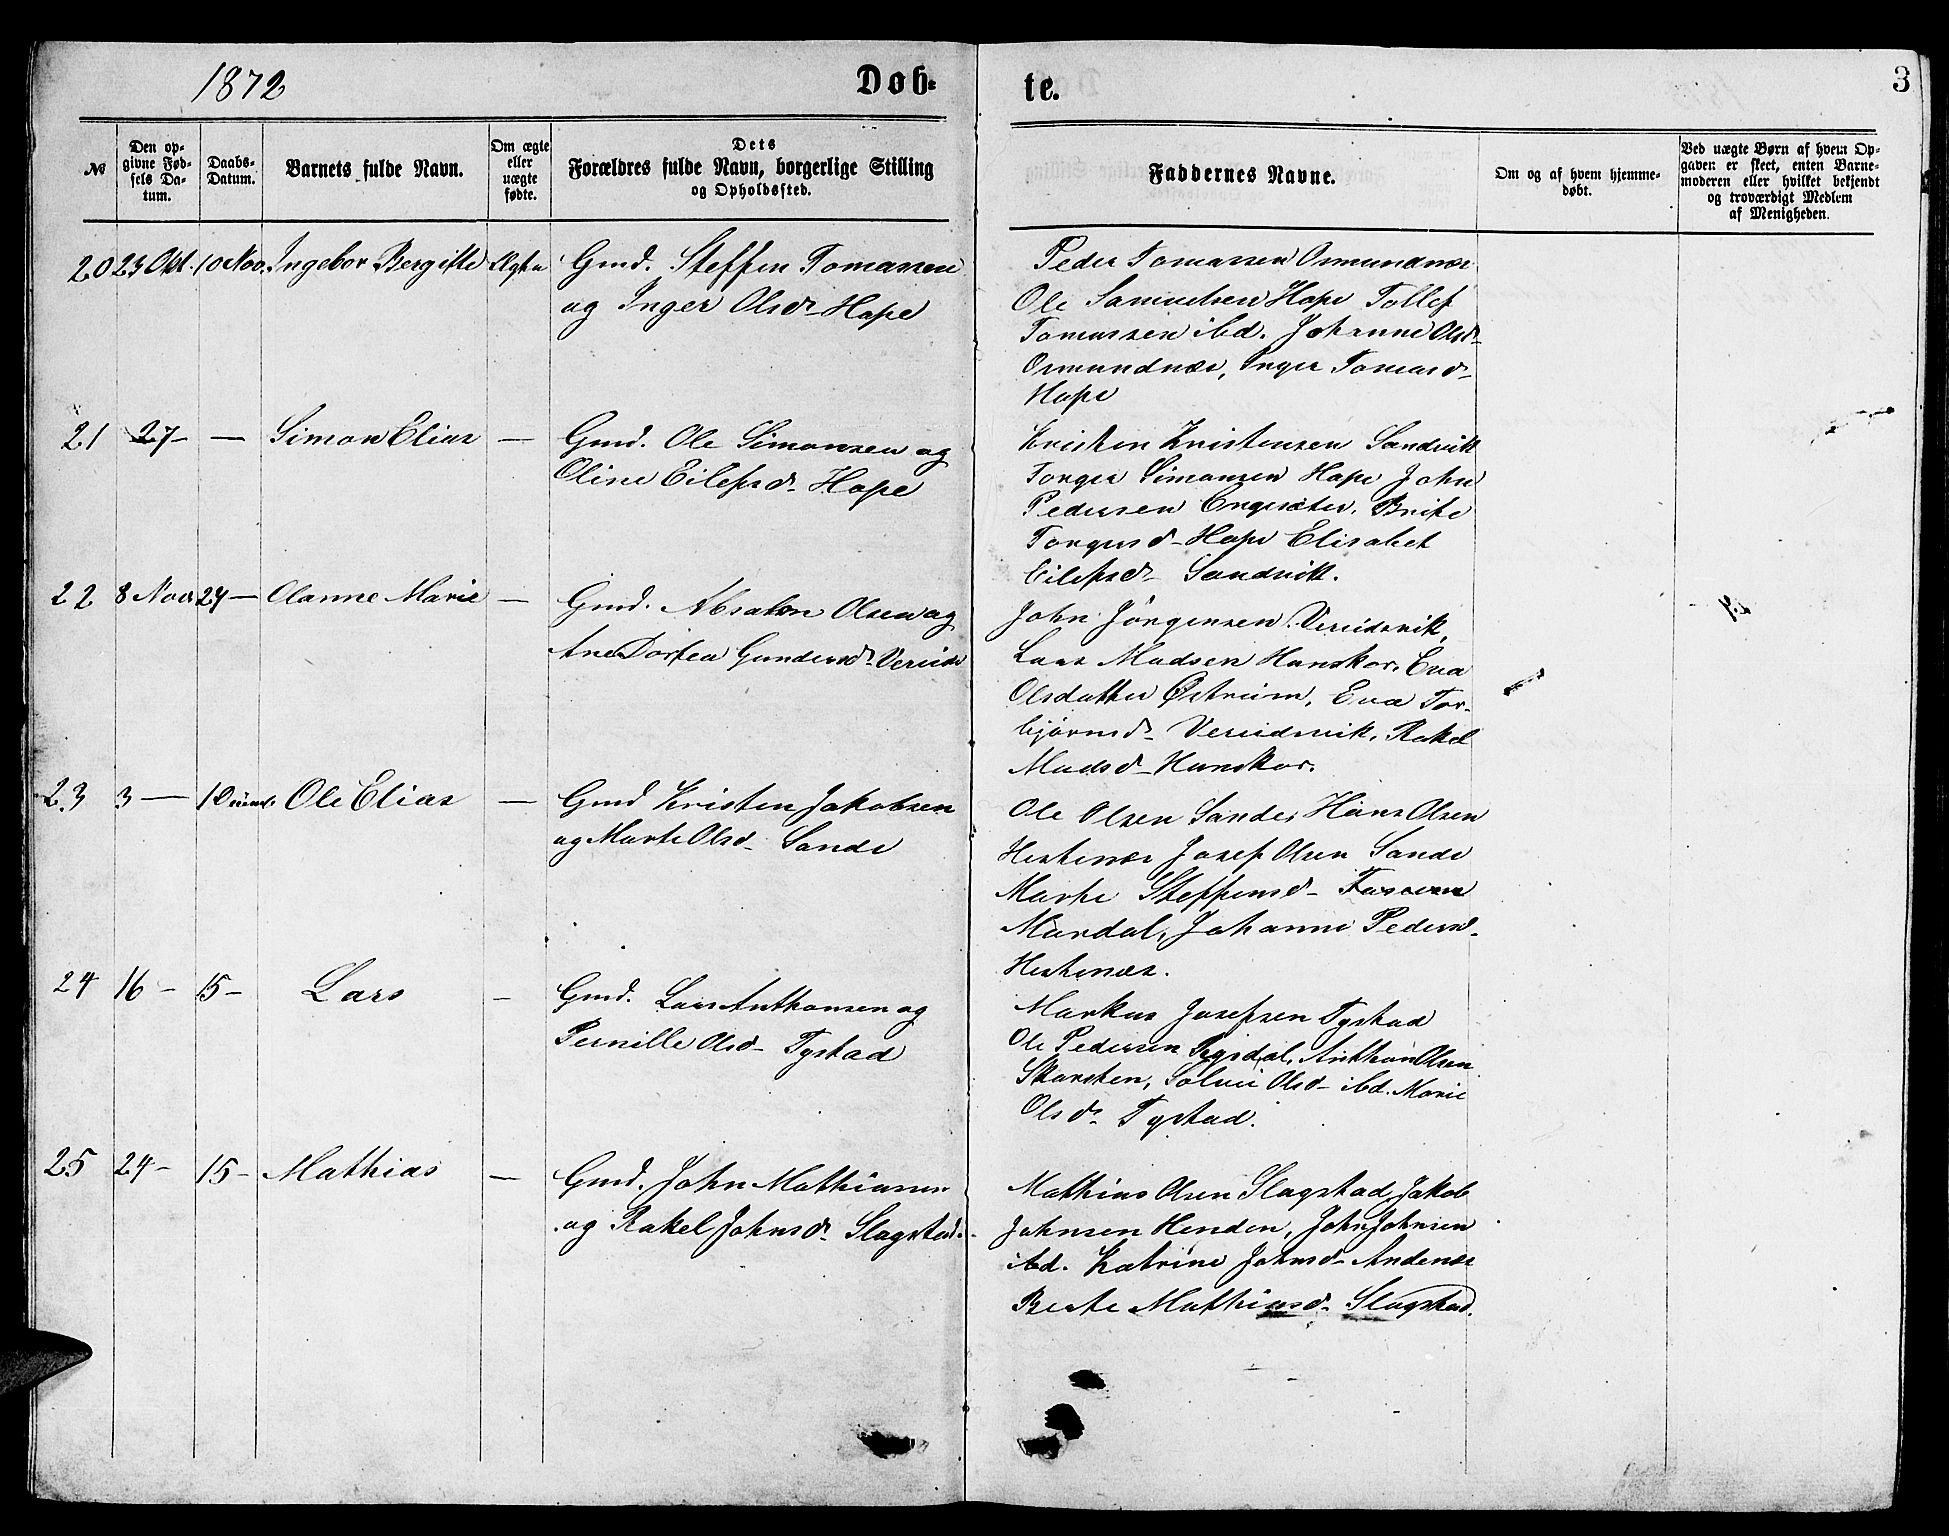 1872
Døb-
te.
3
№
Den op-
givne Fød-
sels Da-
tum.
Daabs-
Datum.
Barnets fulde Navn.
Om ægte
eller
uægte
fødte.
Dets
Forældres fulde Navn, borgerlige Stilling
og Opholdssted.
Faddernes Navne.
Om og af hvem hjemme-
døbt.
Ved uægte Børn af hvem Op-
gaven er skeet, enten Barne-
moderen eller hvilket bekjendt
og troværdigt Medlem
af Menigheden.
20 23 Okt. 10 Nov. Ingebor Bergitte Ægte
Gmd. Steffen Tomassen
og Inger Olsd- Hope
Peder Tomassen Osmundnæs
Ole Samuelsen Hope Tollef
Tomassen ibd. Johanne Olsd-
Osmundnæs, Inger Tomasd-
Hope
21 27- — Simon Elias —
Gmd. Ole Simonsen og
Oline Eilefsd- Hope
Kristen Kristensen Sandvik
Torger Simonsen Hope John
Pedersen Engesæter, Brite
Torgersd- Hope Elisabet
Eilefsd- Sandvik.
22 8 Nov 24 — Olanne Marie —
Gmd. Absalon Olsen og
Ane Dortea Gundersd- Vereide
John Jørgensen Vereidsvik,
Lars Madsen Hunskor, Eva
Olsdatter Østreim, Eva Tor-
bjørnsd- Vereidsvik, Rakel
Madsd- Hunskor.
23 3 — 1 Ole Elias —
Gmd Kristen Jakobsen
og Marte Olsd- Sande
Ole Olsen Sande, Hans Olsen
Hestenæs Josef Olsen Sande
Marte Steffensd-
Mardal, Johanne Pedersd-
Hestenæs.
24 16 - 15 - Lars —
Gmd. Lars Anthonsen og
Pernille Olsd- Tystad
Markus Josefsen Tystad
Ole Pedersen Rygsdal, Anthon Olsen
Skarsten, Solvei Olsd- ibd. Marie
Olsd- Tystad.
25 24 - 15 - Mathias —
Gmd. John Mathiassen
og Rakel Johnsd- Slagstad.
Mathias Olsen Slagstad, Jakob
Johnsen Henden, John Johnsen
ibd. Katrine Johnsd- Andenæs
Berte Mathiasd- Slagstad.